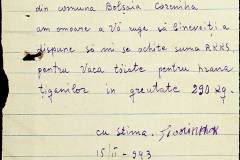 din comuna Bolsaia Coreniha
am onoare a Vă ruga să binevoiți a
dispune să mi se achite suma
pentru vaca tăiată pentru hrana
țiganilor in greutate 290 kg.
cu stima.
15/II - 943